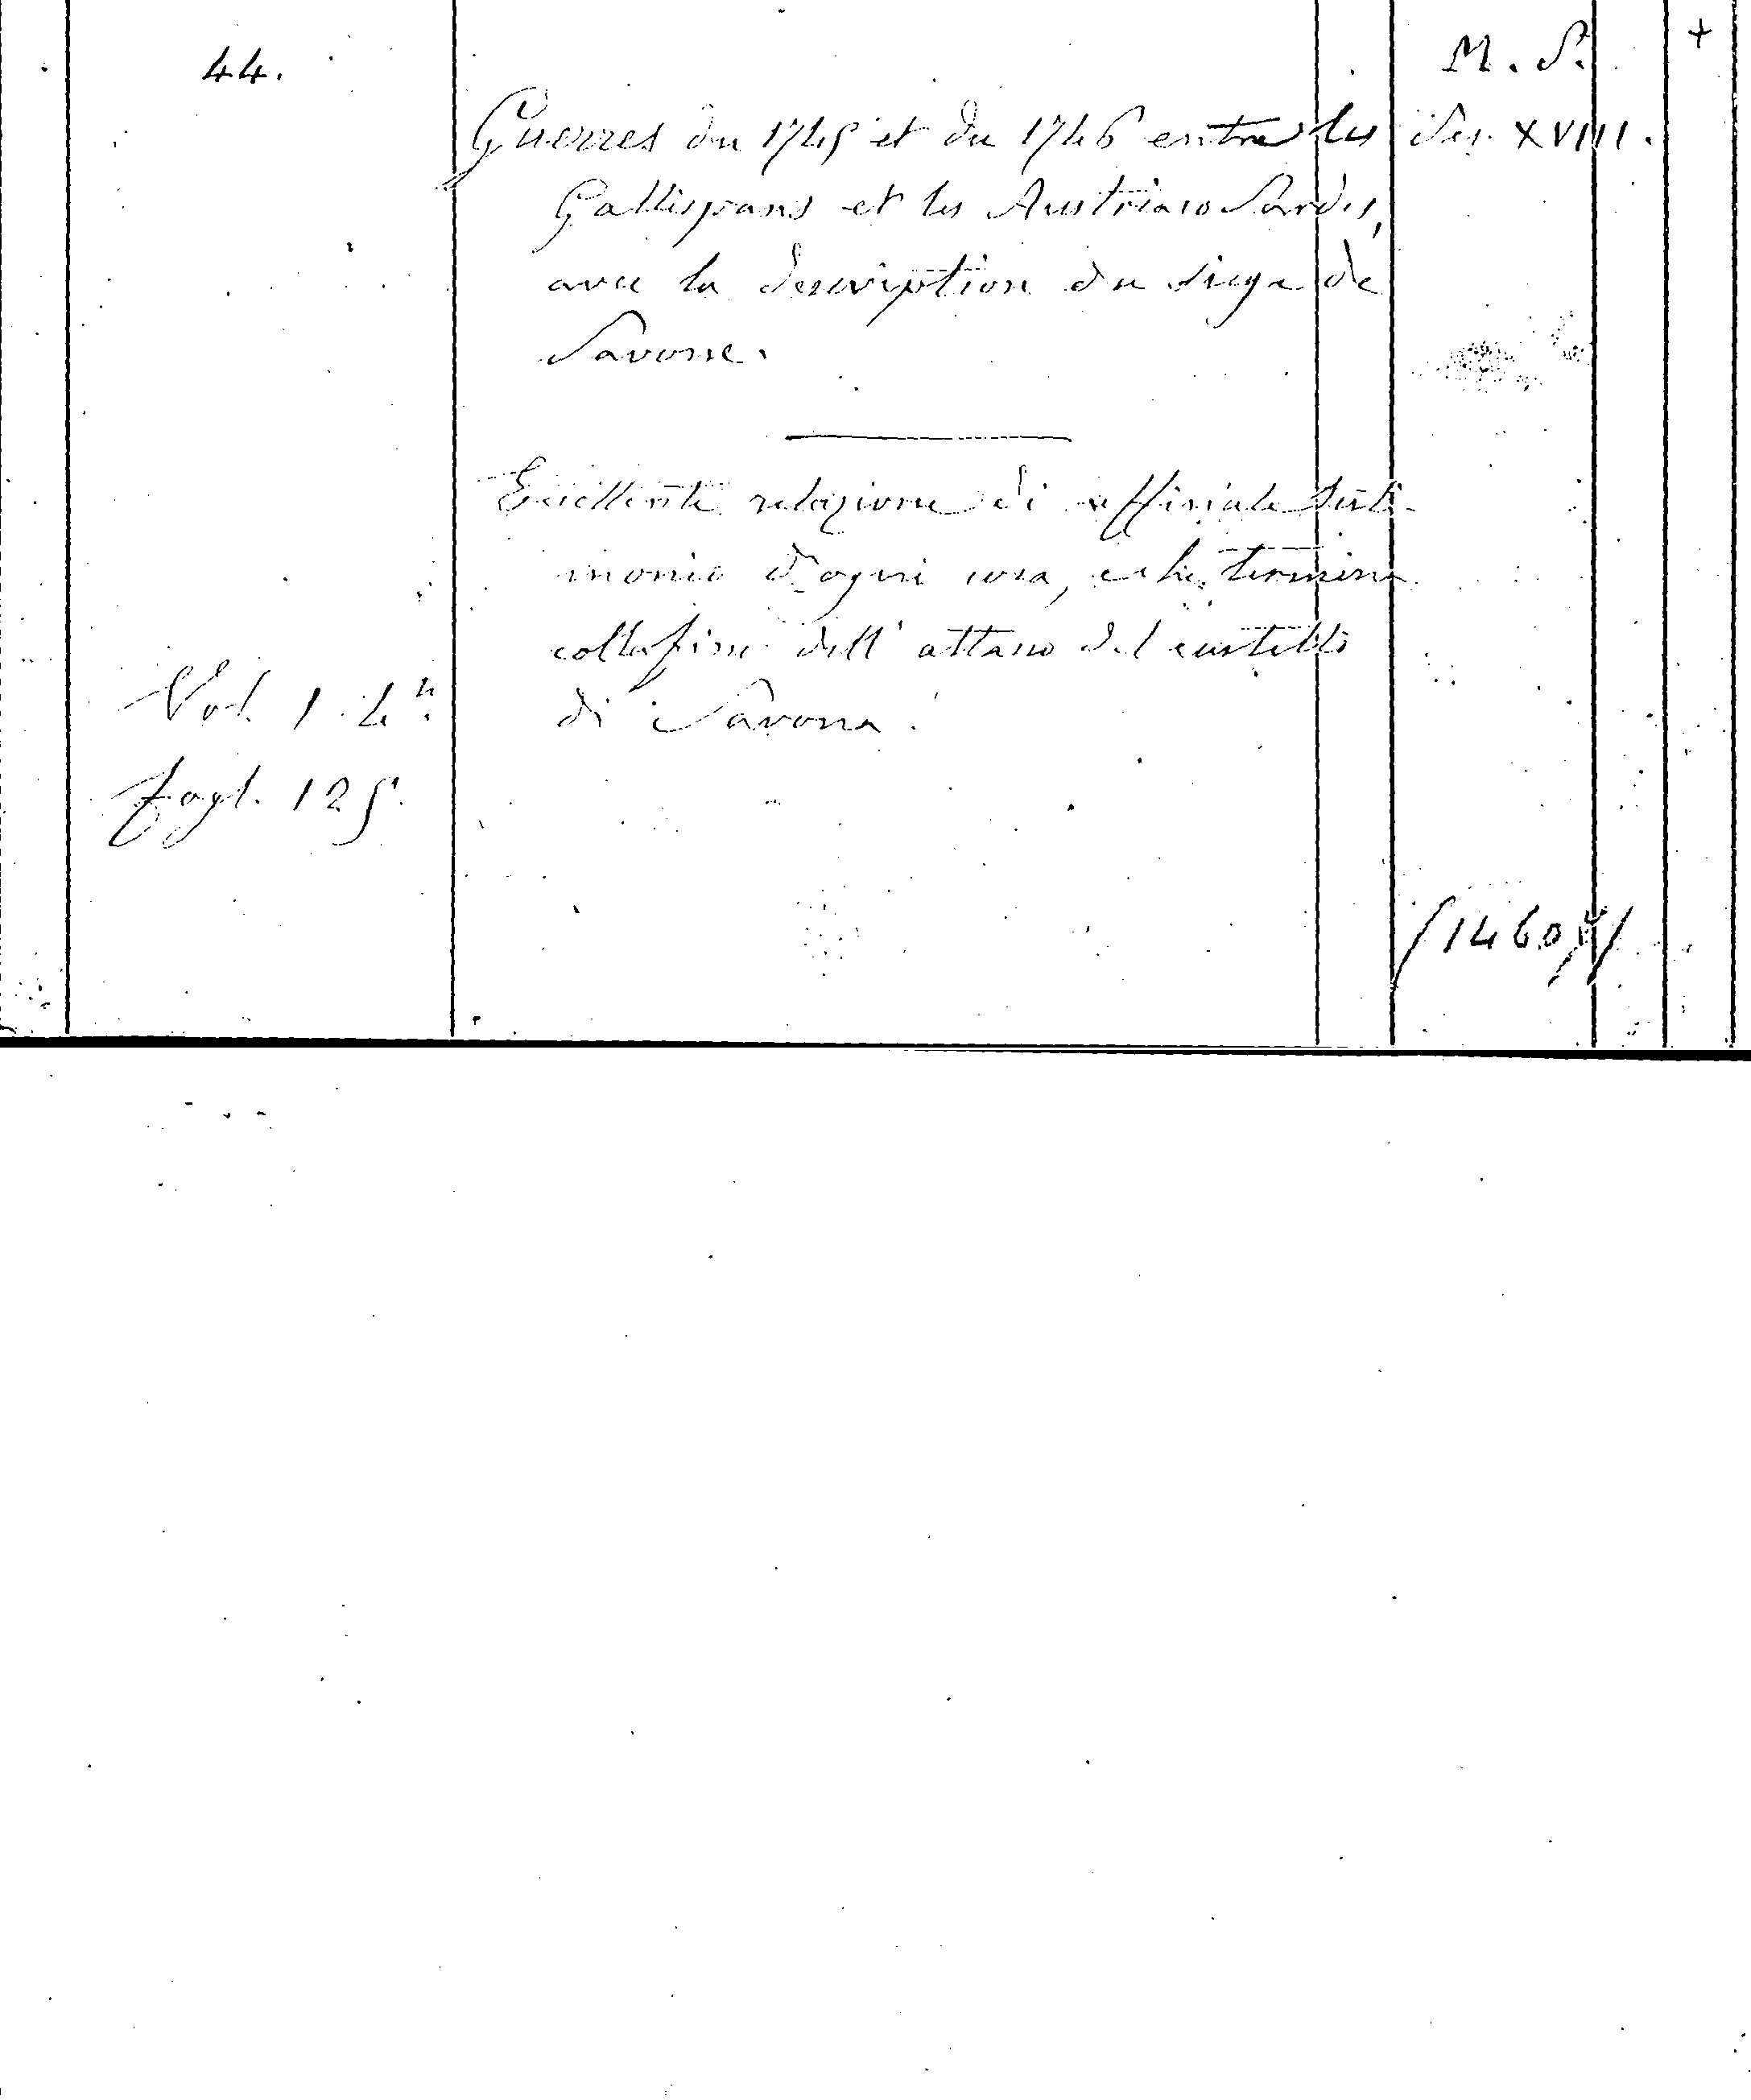 44.
M. S. +
Guerres du 1745 et du 1746 entre les Sec. XVIII.
Gallispans et les Austriaco Sardes,
avec la description du siege de
Savone.
Eccellente relazione di uffiziale testi-
monio d'ogni cosa, e che termina
colla fine dell' attacco del castello
di Savona.
Vol. 1. 4º.
fogl. 125.
/1460